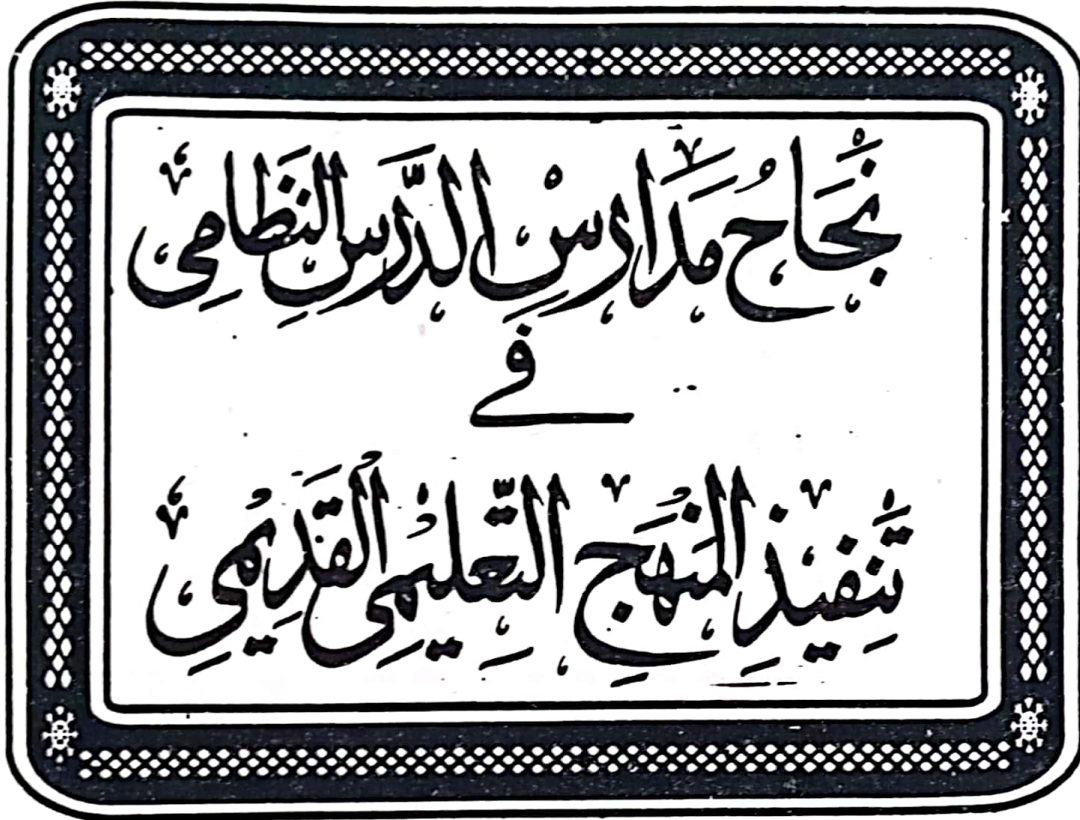 نَجَاحُ مَدَارِسْ الدَّرْسِ النِّظَامِي
في
تَنْفِيذِ المَنْهَجِ التَّعْلِيْمِي القَدِيْمِي